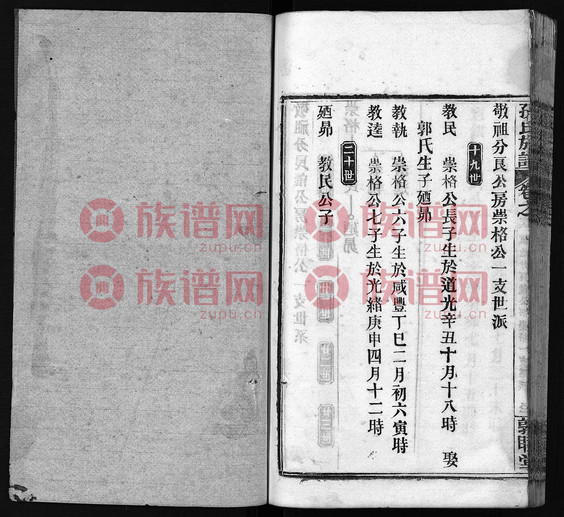 孫氏族譜 卷之
敬祖分良公房崇格公一支世派
十九世
教民 崇格公長子生於道光辛丑十月十八時 娶
郭氏生子廼昴
教執 崇格公六子生於咸豐丁巳二月初六寅時
教逵 崇格公七子生於光緒庚申四月十二時
二十世
廼昴 教民公子
族谱网
zupu.cn
族谱网
zupu.cn
族谱网
zupu.cn
族谱网
zupu.cn